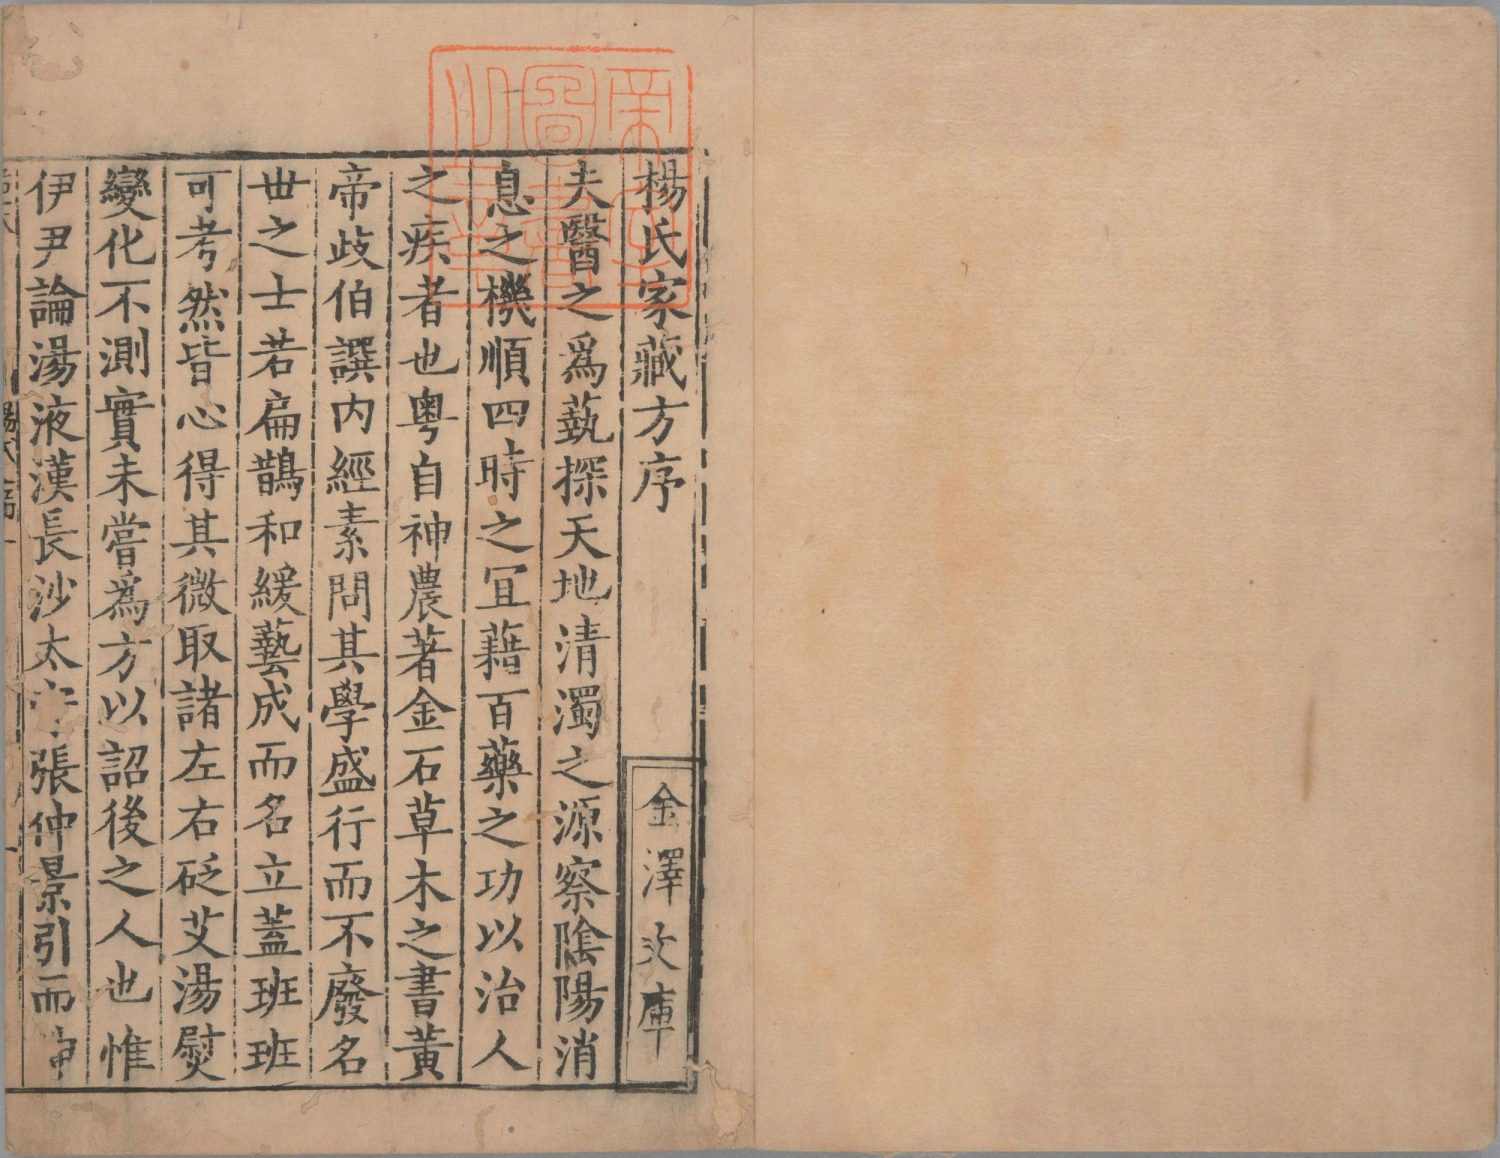 楊氏家藏方序
夫醫之爲蓺探天地清濁之源察陰陽消
息之機順四時之冝藉百藥之功以治人
之疾者也粤自神農著金石草木之書黄
帝歧伯譔内經素問其學盛行而不廢名
世之士若扁鵲和緩藝成而名立蓋班班
可考然皆心得其微取諸左右砭艾湯熨
變化不測實未嘗爲方以詔後之人也惟
伊尹論湯液漢長沙太守張仲景引而伸
金澤文庫
帝室圖書